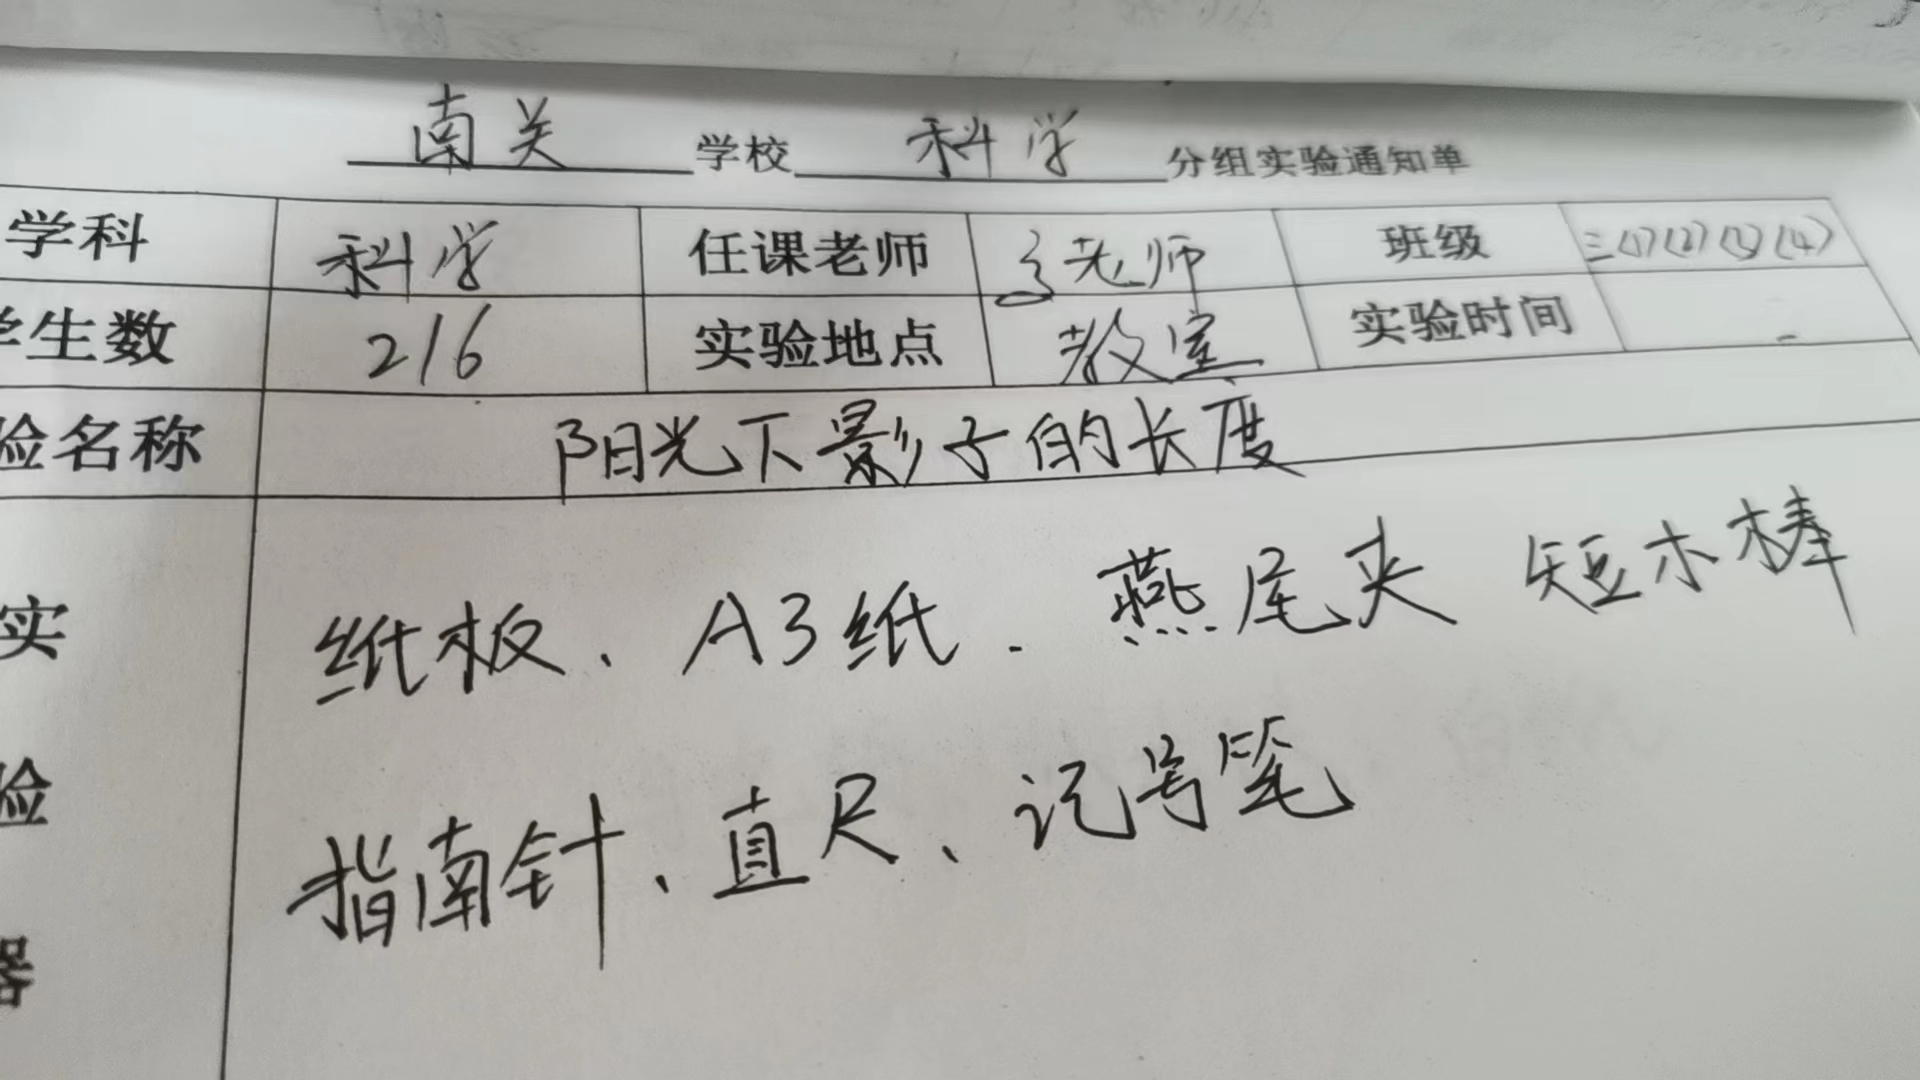 南关学校科学分组实验通知单
学科 科学 任课老师 老师 班级 三(1)(2)(3)(4)
学生数 216 实验地点 教室 实验时间
验名称 阳光下影子的长度
实 纸板、A3纸.燕尾夹 短木棒
验 指南针、直尺、记号笔
器